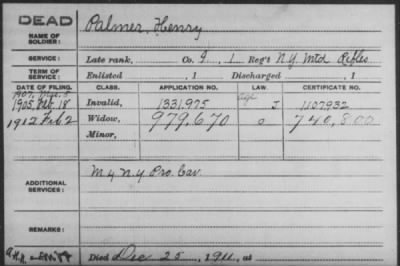 DEAD
NAME OF SOLDIER: Palmer, Henry
SERVICE: Late rank, Co. I, 1 Reg't N.Y. Mtd Rifles
TERM OF SERVICE: Enlisted , 1 Discharged , 1
DATE OF FILING. CLASS. APPLICATION NO. LAW. CERTIFICATE NO.
1905, Feb. 18 Invalid, 1331,975 J 1107932
1912 Feb 2 Widow, 979,670 0 740,800
Minor,
ADDITIONAL SERVICES: M 4 N.Y. Pro. Cav.
REMARKS:
Died Dec 25, 1911, at